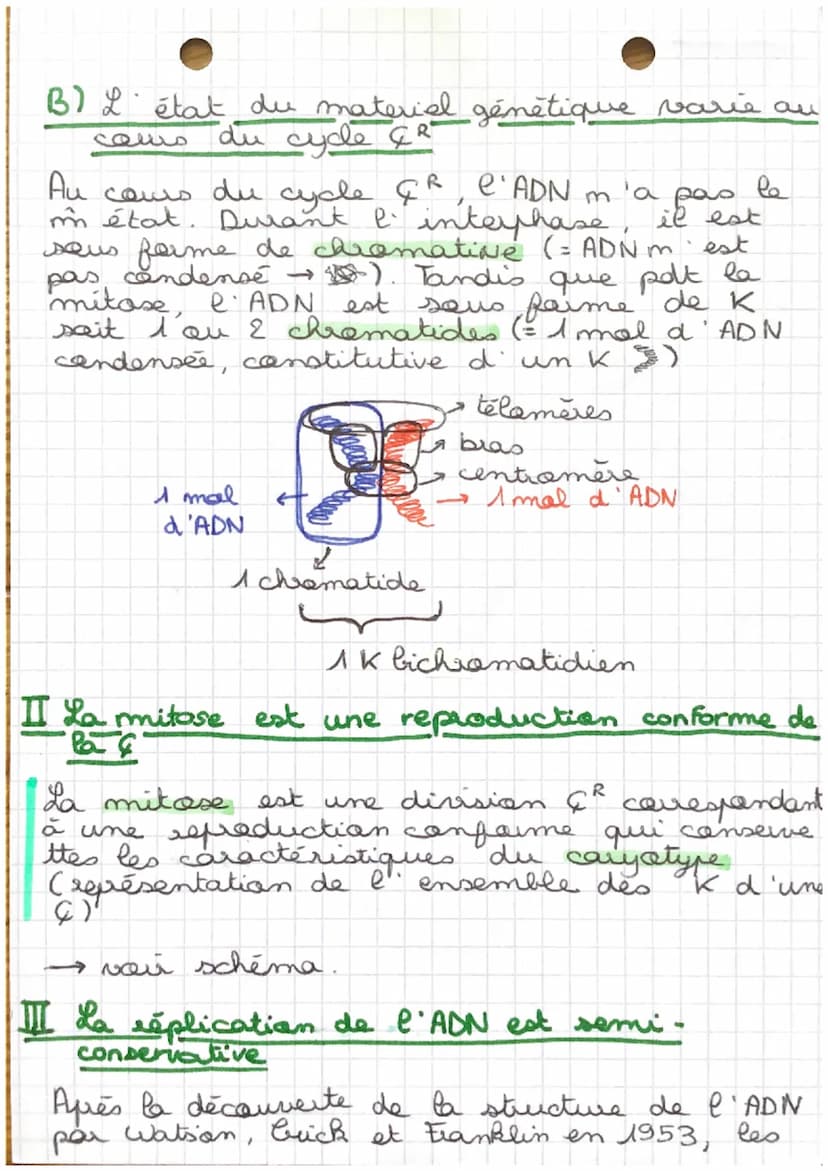 B) L'état du matériel génétique varie au
cours du cycle ȼᴿ
Au cours du cycle ȼᴿ, l'ADN n'a pas le
m̂ état. Durant l'interphase, il est
sous forme de chromatine (= ADN n'est
pas condensé → ). Tandis que pdt la
mitose, l'ADN est sous forme de K
soit 1 ou 2 chromatides (= 1 mol d'ADN
condensée, constitutive d'un K )
→ télomères
→ bras
→ centromère
1 mol
d'ADN
→ 1 mol d'ADN
1 chromatide
1 K bichromatidien
II La mitose est une reproduction conforme de
la ȼ
La mitose est une division ȼᴿ correspondant
à une reproduction conforme qui conserve
ttes les caractéristiques du caryotype
(représentation de l'ensemble des K d'une
ȼ)
→ voir schéma.
III La réplication de l'ADN est semi-
conservative
Après la découverte de la structure de l'ADN
par Watson, Crick et Franklin en 1953, les